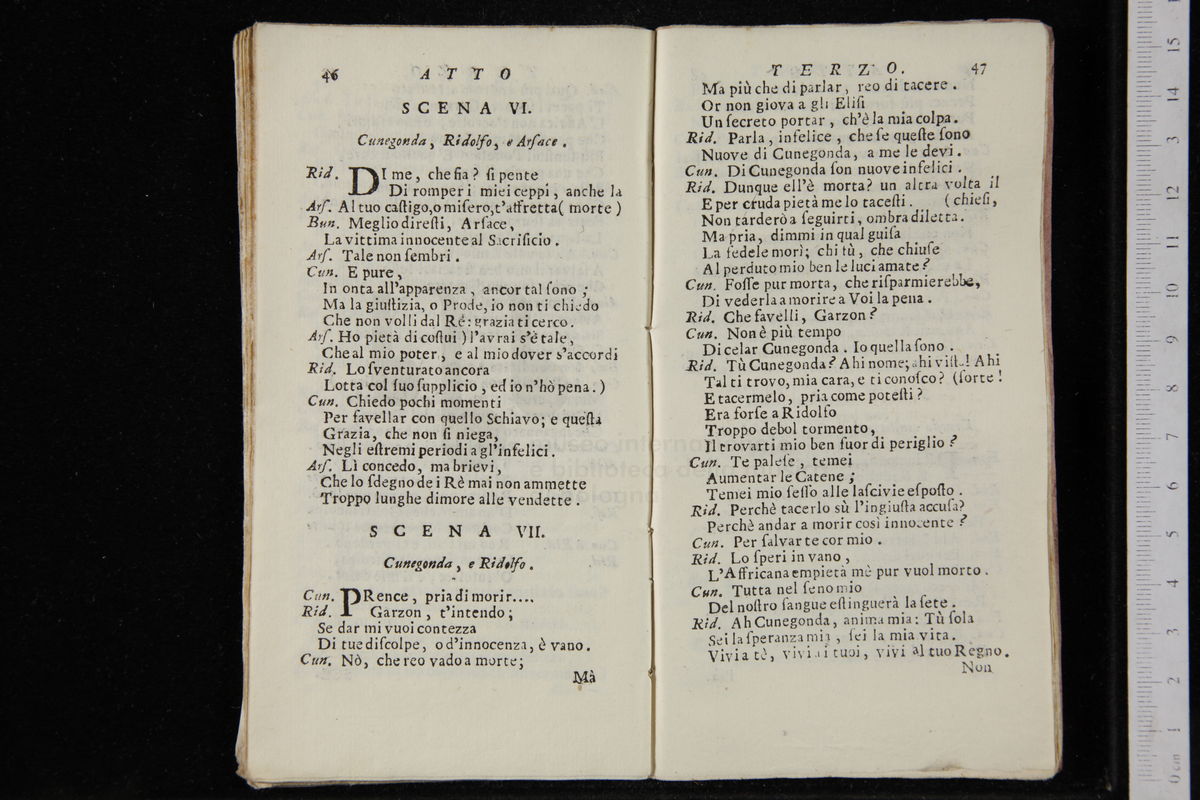 46 ATTO
SCENA VI.
Cunegonda, Ridolfo, e Arſace.
Rid. DI me, che ſia? ſi pente
Di romper i miei ceppi, anche la
Arſ. Al tuo caſtigo, o miſero, t'affretta ( morte )
Bun. Meglio direſti, Arſace,
La vittima innocente al Sacrificio.
Arſ. Tale non ſembri.
Cun. E pure,
In onta all'apparenza, ancor tal ſono;
Ma la giuſtizia, o Prode, io non ti chiedo
Che non volli dal Ré: grazia ti cerco.
Arſ. Ho pietà di coſtui ) l'avrai s'é tale,
Che al mio poter, e al mio dover s'accordi
Rid. Lo ſventurato ancora
Lotta col ſuo ſupplicio, ed io n'hò pena. )
Cun. Chiedo pochi momenti
Per favellar con quello Schiavo; e queſta
Grazia, che non ſi niega,
Negli eſtremi periodi a gl'infelici.
Arſ. Lì concedo, ma brievi,
Che lo ſdegno de i Rè mai non ammette
Troppo lunghe dimore alle vendette.
SCENA VII.
Cunegonda, e Ridolfo.
Cun. PRence, pria di morir....
Rid. Garzon, t'intendo;
Se dar mi vuoi contezza
Di tue diſcolpe, o d'innocenza, è vano.
Cun. Nò, che reo vado a morte;
Mà
TERZO. 47
Ma più che di parlar, reo di tacere.
Or non giova a gli Eliſi
Un ſecreto portar, ch'è la mia colpa.
Rid. Parla, infelice, che ſe queſte ſono
Nuove di Cunegonda, a me le devi.
Cun. Di Cunegonda ſon nuove infelici.
Rid. Dunque ell'è morta? un altra volta il
E per cruda pietà me lo taceſti. ( chieſi,
Non tarderò a ſeguirti, ombra diletta.
Ma pria, dimmi in qual guiſa
La fedele morì; chi tù, che chiuſe
Al perduto mio ben le luci amate?
Cun. Foſſe pur morta, che riſparmierebbe,
Di vederla a morire a Voi la pena.
Rid. Che favelli, Garzon?
Cun. Non è più tempo
Di celar Cunegonda. Io quella ſono.
Rid. Tù Cunegonda? Ahi nome; ahi viſta! Ahi
Tal ti trovo, mia cara, e ti conoſco? (ſorte!
E tacermelo, pria come poteſti?
Era forſe a Ridolfo
Troppo debol tormento,
Il trovarti mio ben fuor di periglio?
Cun. Te paleſe, temei
Aumentar le Catene;
Temei mio ſeſſo alle laſcivie eſpoſto.
Rid. Perchè tacerlo sù l'ingiuſta accuſa?
Perchè andar a morir così innocente?
Cun. Per ſalvar te cor mio.
Rid. Lo ſperi in vano,
L'Affricana empietà mè pur vuol morto.
Cun. Tutta nel ſeno mio
Del noſtro ſangue eſtinguerà la ſete.
Rid. Ah Cunegonda, anima mia: Tù ſola
Sei la ſperanza mia, ſei la mia vita.
Vivi a tè, vivi ai tuoi, vivi al tuo Regno.
Non